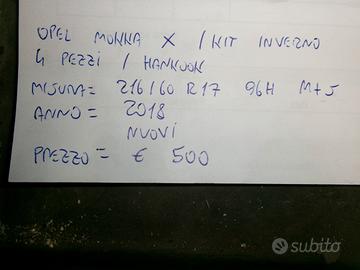 OPEL MOKKA X / KIT INVERNO
4 PEZZI / HANKOOK
MISURA= 216/60 R17 96H M+S
ANNO= 2018
NUOVI
PREZZO = € 500
subito